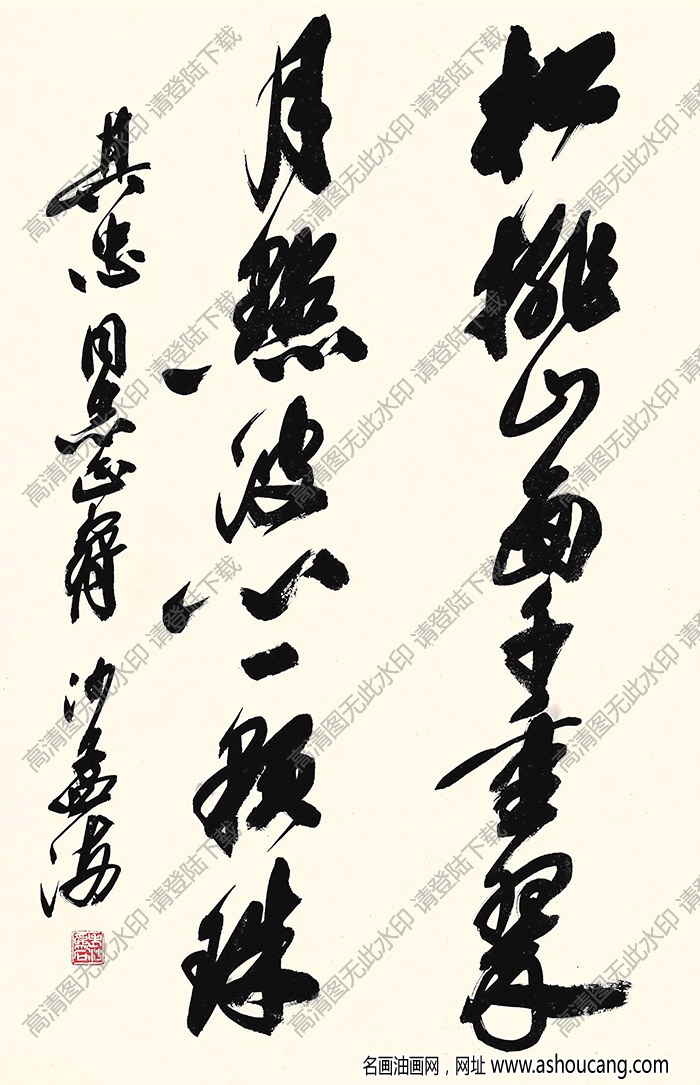 松排山面千重翠
月點波心一顆珠
其忠同志正腕 沙孟海
高清图无此水印 请登陆下载
名画油画网，网址 www.ashoucang.com